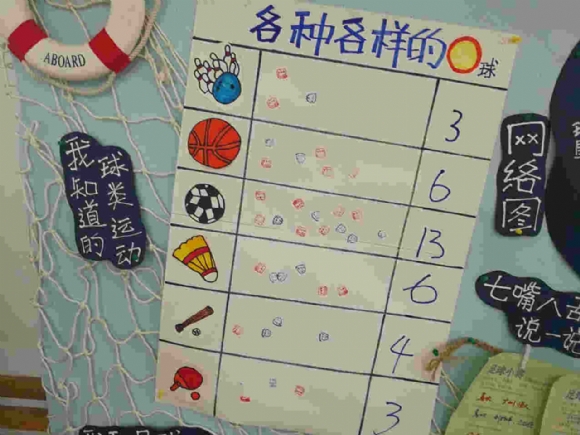 各种各样的球
ABOARD
3
6
13
6
4
3
我知道的
球类运动
网络图
七嘴八舌
说一说